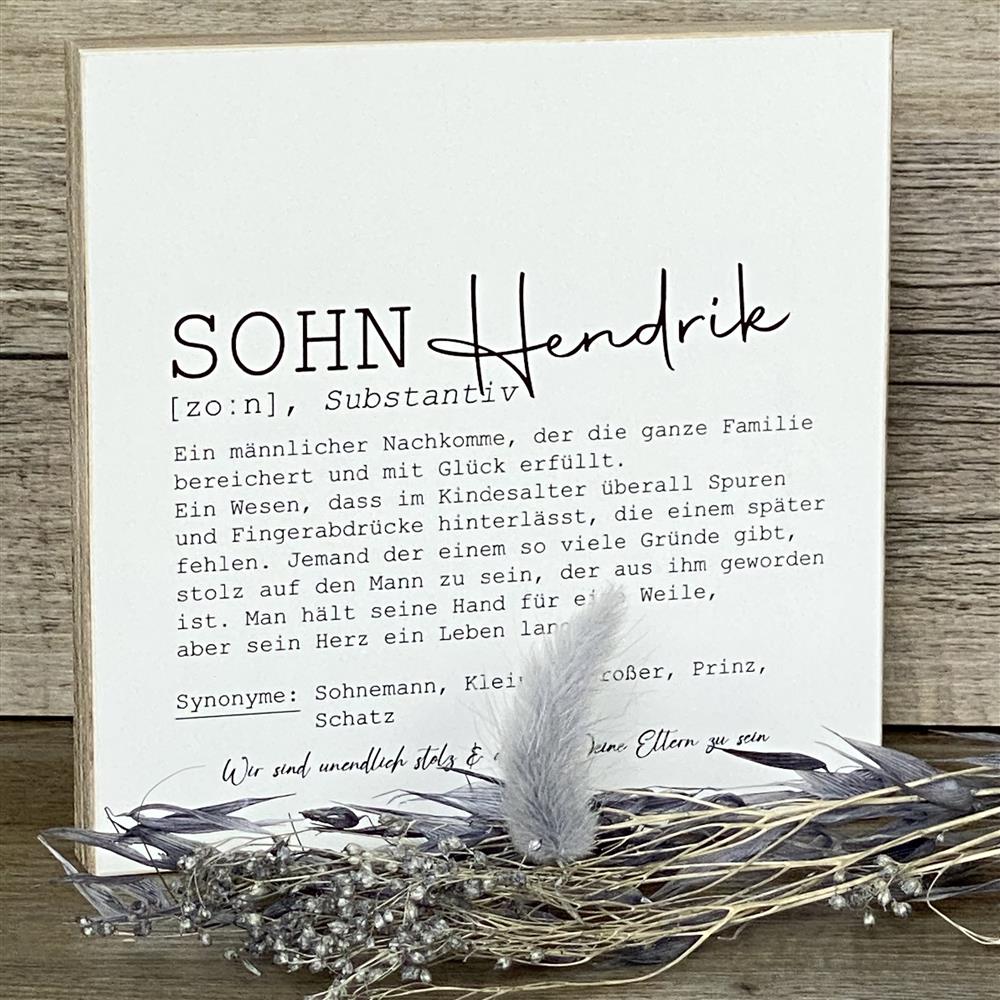 SOHN Hendrik
[zo:n], Substantiv
Ein männlicher Nachkomme, der die ganze Familie
bereichert und mit Glück erfüllt.
Ein Wesen, dass im Kindesalter überall Spuren
und Fingerabdrücke hinterlässt, die einem später
fehlen. Jemand der einem so viele Gründe gibt,
stolz auf den Mann zu sein, der aus ihm geworden
ist. Man hält seine Hand für eine Weile,
aber sein Herz ein Leben lang
Synonyme: Sohnemann, Prinz,
Schatz
Wir sind unendlich stolz & Deine Eltern zu sein